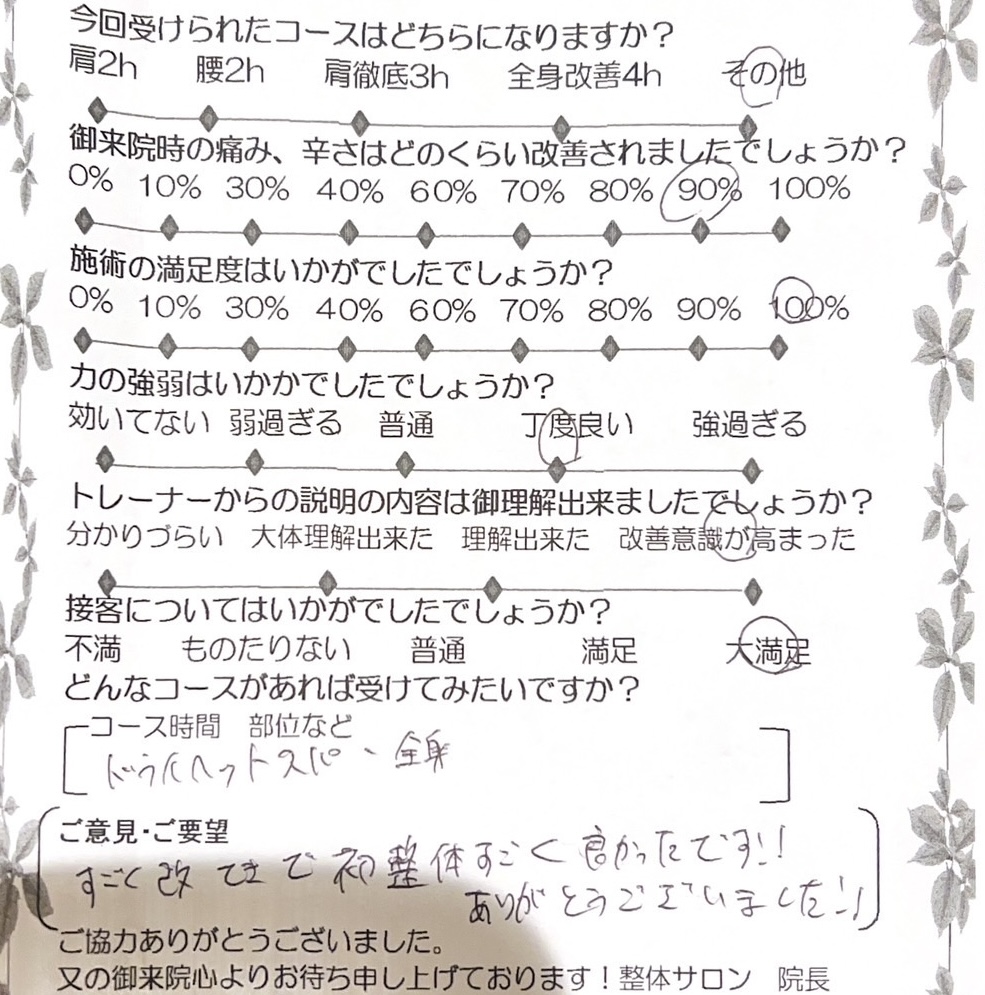 今回受けられたコースはどちらになりますか？
肩2h 腰2h 肩徹底3h 全身改善4h その他
御来院時の痛み、辛さはどのくらい改善されましたでしょうか？
0% 10% 30% 40% 60% 70% 80% 90% 100%
施術の満足度はいかがでしたでしょうか？
0% 10% 30% 40% 60% 70% 80% 90% 100%
力の強弱はいかかでしたでしょうか？
効いてない 弱過ぎる 普通 丁度良い 強過ぎる
トレーナーからの説明の内容は御理解出来ましたでしょうか？
分かりづらい 大体理解出来た 理解出来た 改善意識が高まった
接客についてはいかがでしたでしょうか？
不満 ものたりない 普通 満足 大満足
どんなコースがあれば受けてみたいですか？
コース時間 部位など
ドライヘッドスパ、全身
ご意見・ご要望
すごく 改 てき で 初整体すごく良かったです!!
ありがとうございました!!
ご協力ありがとうございました。
又の御来院心よりお待ち申し上げております！整体サロン 院長